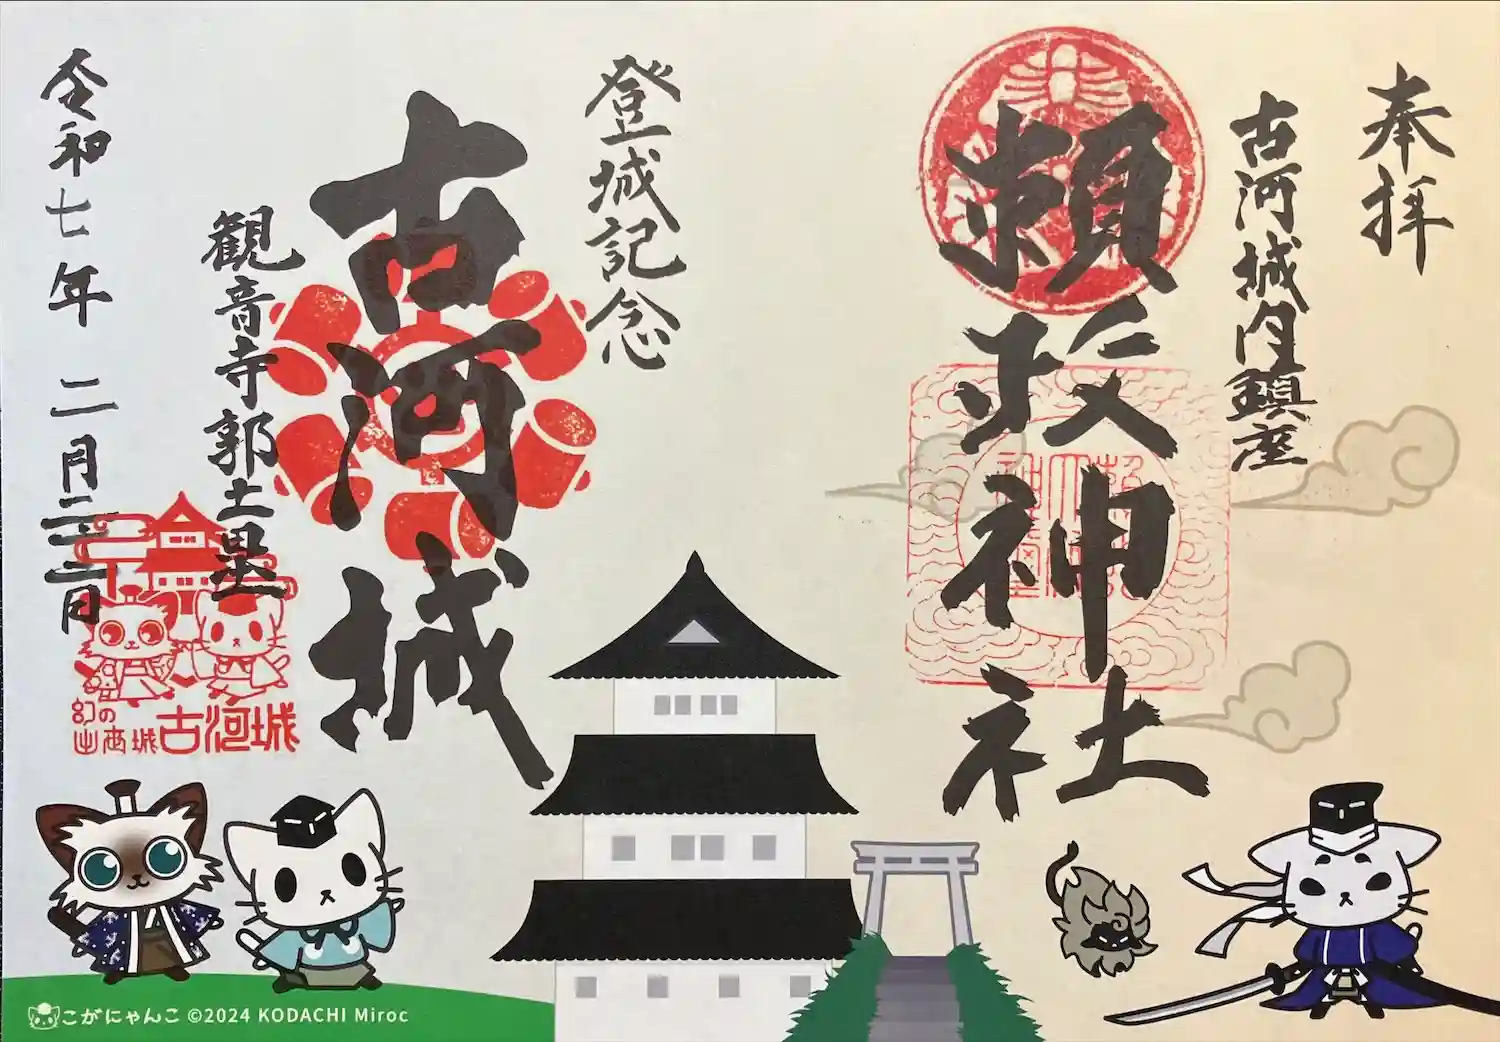 奉拝
古河城内鎮座
頼政神社
登城記念
古河城
観音寺郭土塁
令和七年 二月二十三日
幻の
出西城 古河城
こがにゃんこ ©2024 KODACHI Miroc